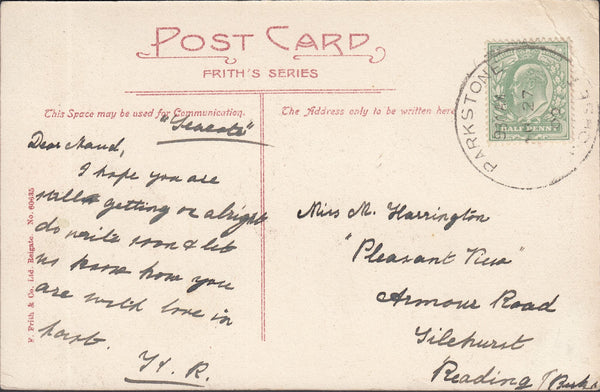 POST CARD
FRITH'S SERIES
This Space may be used for Communication.
The Address only to be written here
"Seacote"
Dear Maud,
I hope you are
still getting on alright
do write soon & let
us know how you
are with love in
hast.
H. R.
F. Frith & Co. Ltd. Reigate. No. 60635
Miss M. Harrington
"Pleasant View"
Armour Road
Tilehurst
Reading
PARKSTONE
27
HALF PENNY